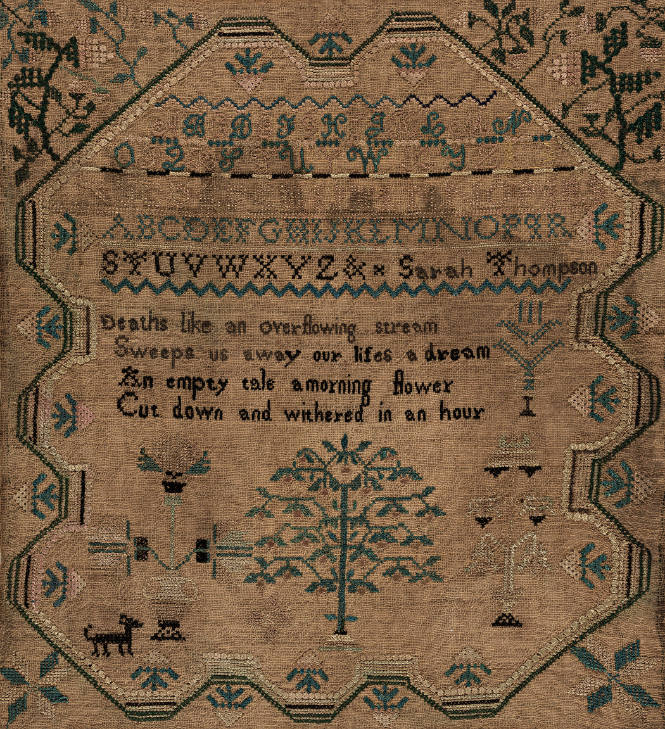 B D I K I L N
O Q P U W Y
ABCDEFGHIJKLMNOPQR
STUVWXYZ& Sarah Thompson
Deaths like an overflowing stream
Sweeps us away our lifes a dream
An empty tale amorning flower
Cut down and withered in an hour